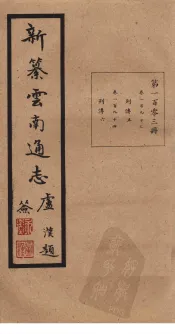 新纂雲南通志
盧漢題簽
第一百零三冊
卷一百九十三
列傳五
卷一百九十四
列傳六